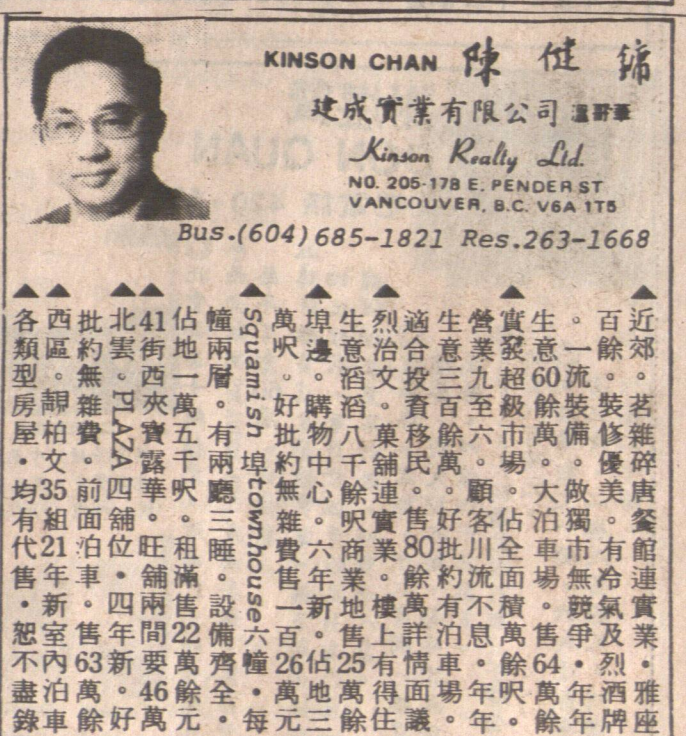 KINSON CHAN 陳健
建成實業有限公司 溫哥華
Kinson Realty Ltd.
NO. 205-178 E. PENDER ST
VANCOUVER, B.C. V6A 1T5
Bus.(604)685-1821 Res.263-1668
▲近郊。茗雜碎唐餐館連實業・雅座
百餘。裝修優美。有冷氣及烈酒牌
。一流裝備。做獨市無競爭・年年
生意60餘萬。大泊車場。售64萬餘
▲實發超級市場。佔全面積萬餘呎。
營業九至六。顧客川流不息。年年
生意三百餘萬。好批約有泊車場。
適合投資移民。售80餘萬詳情面議
▲烈治文。菓舖連實業。樓上有得住
生意滔滔八千餘呎商業地售25萬餘
▲埠邊。購物中心。六年新。佔地三
萬呎。好批約無雜費售一百26萬元
▲Squamish 埠townhouse六幢。每
幢兩層。有兩廳三睡。設備齊全。
佔地一萬五千呎。租滿售22萬餘元
▲41街西夾寶露華。旺舖兩間要46萬
▲北雲。PLAZA四舖位・四年新。好
批約無雜費。前面泊車。售63萬餘
▲西區。靚柏文35組21年新室內泊車
▲各類型房屋・均有代售・恕不盡錄